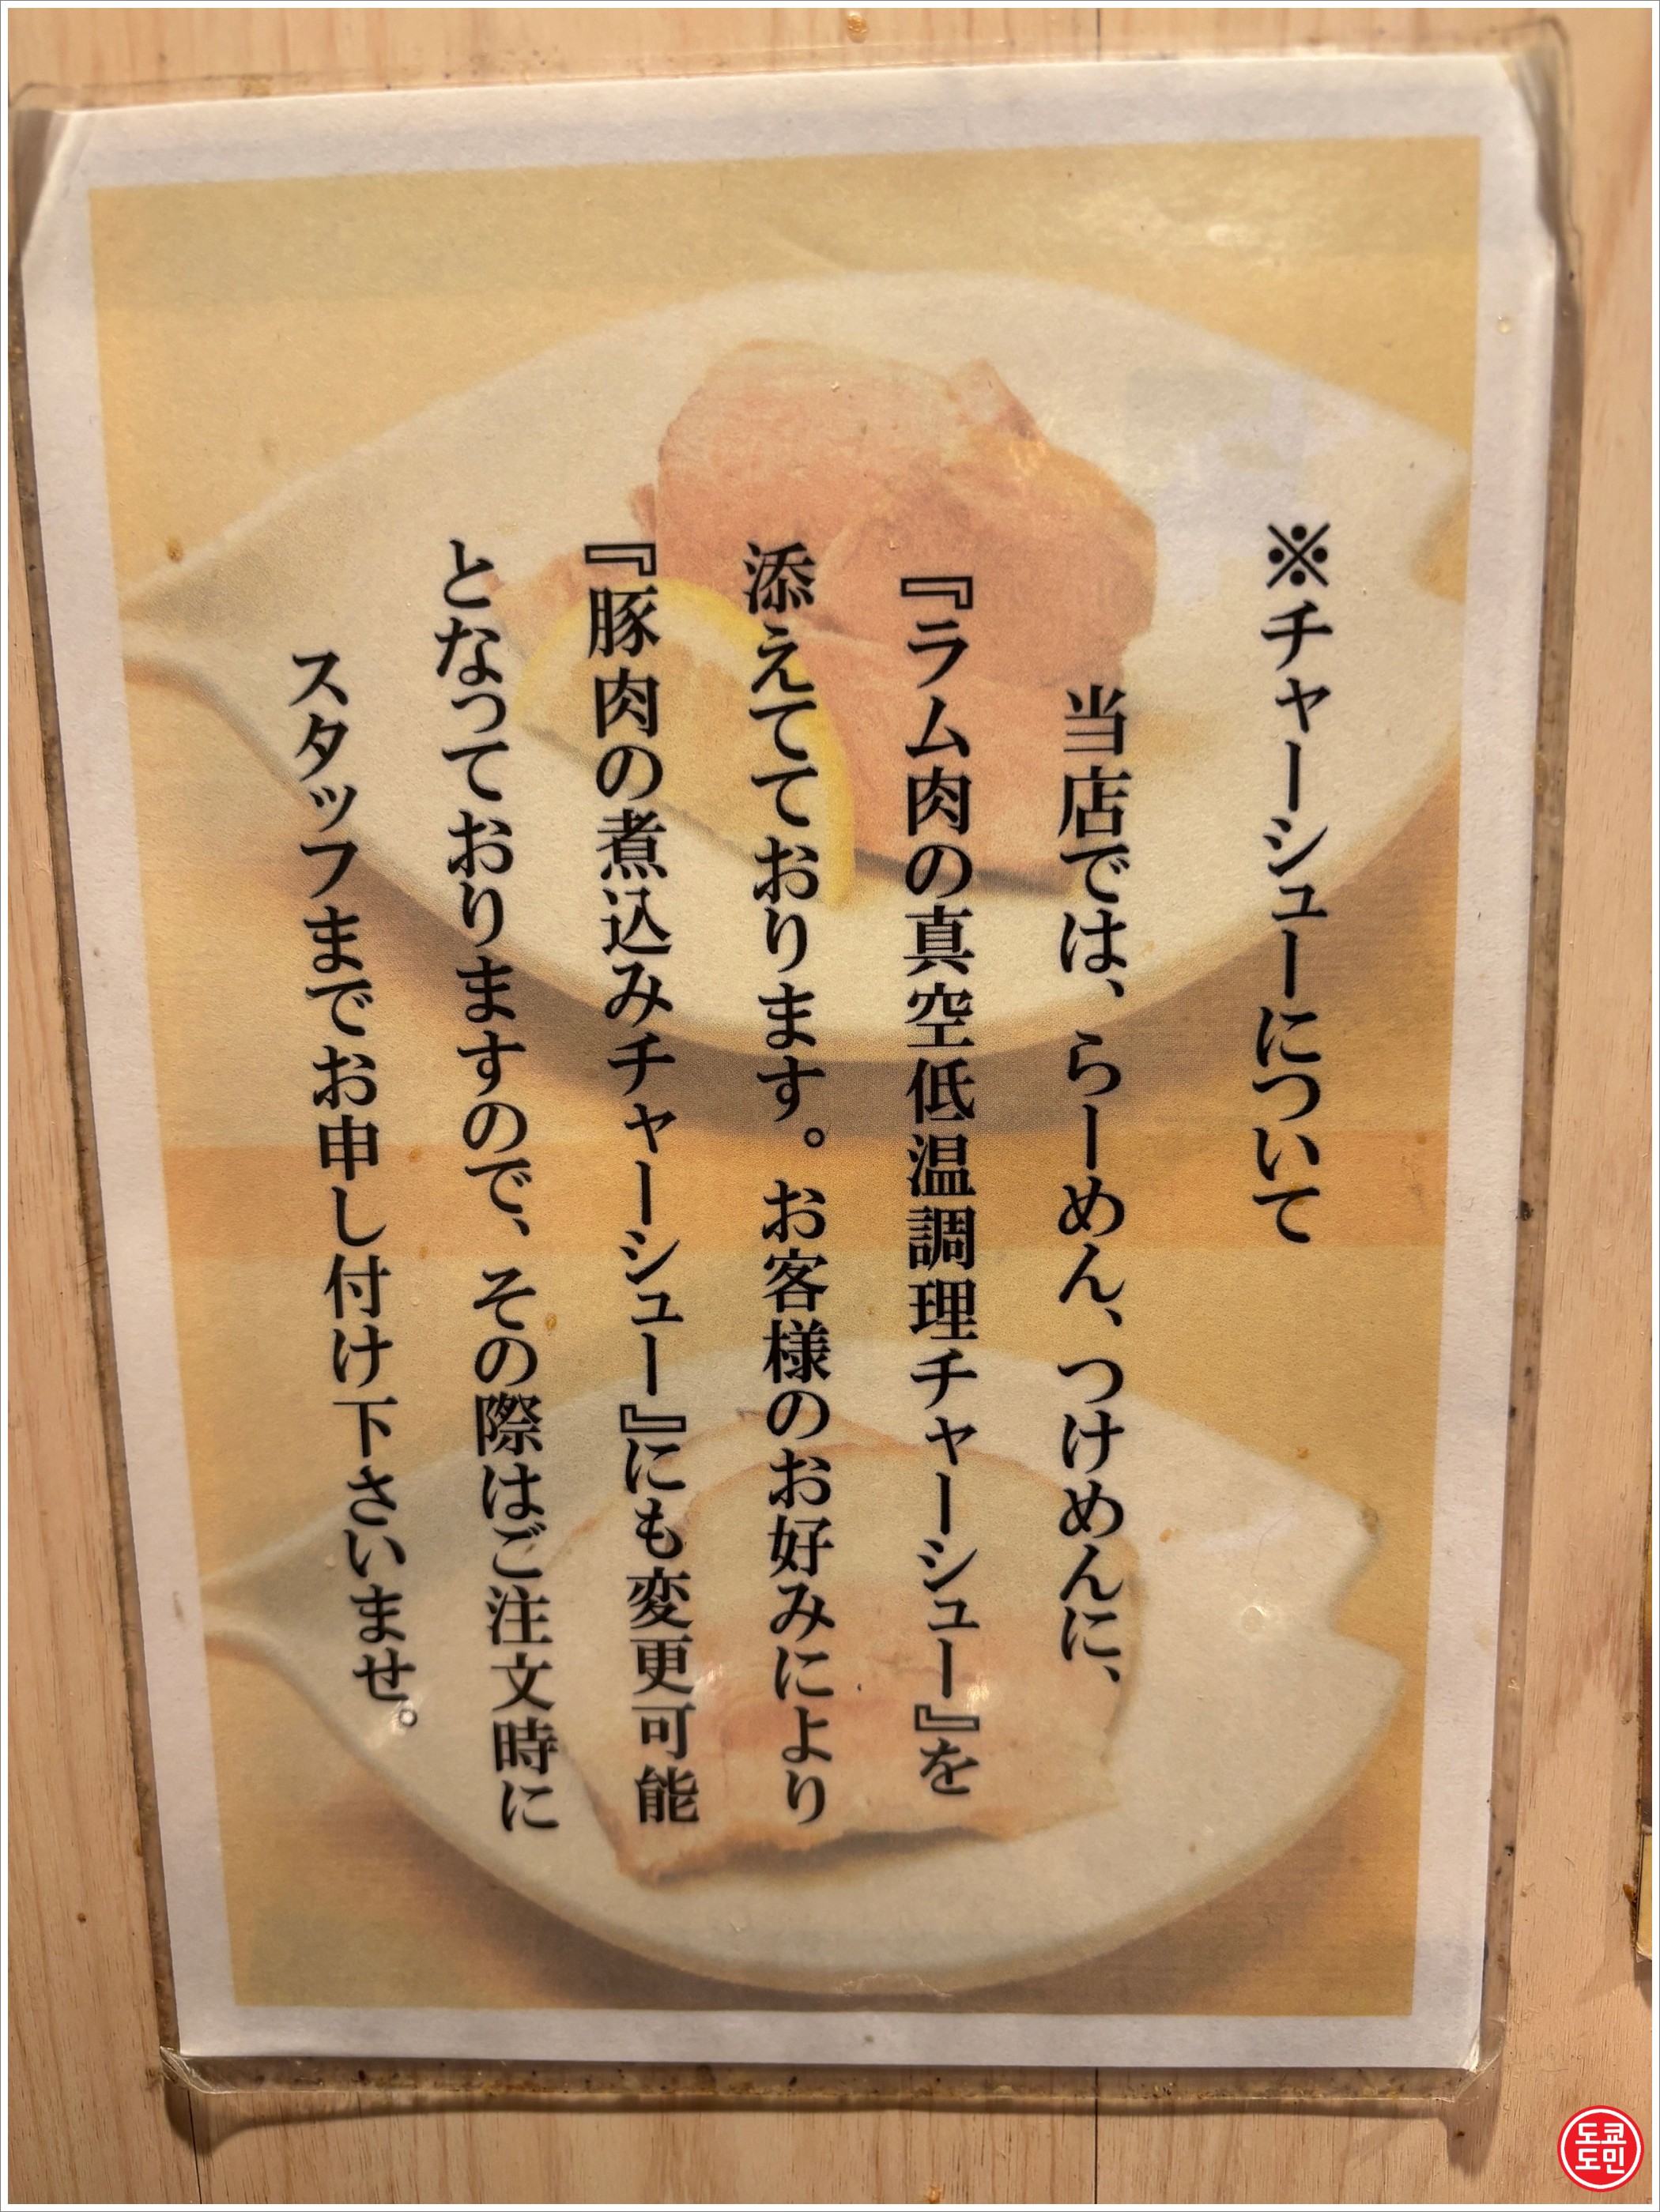 ※チャーシューについて
当店では、らーめん、つけめんに、
『ラム肉の真空低温調理チャーシュー』を
添えてております。お客様のお好みにより
『豚肉の煮込みチャーシュー』にも変更可能
となっておりますので、その際はご注文時に
スタッフまでお申し付け下さいませ。
도쿄
도민